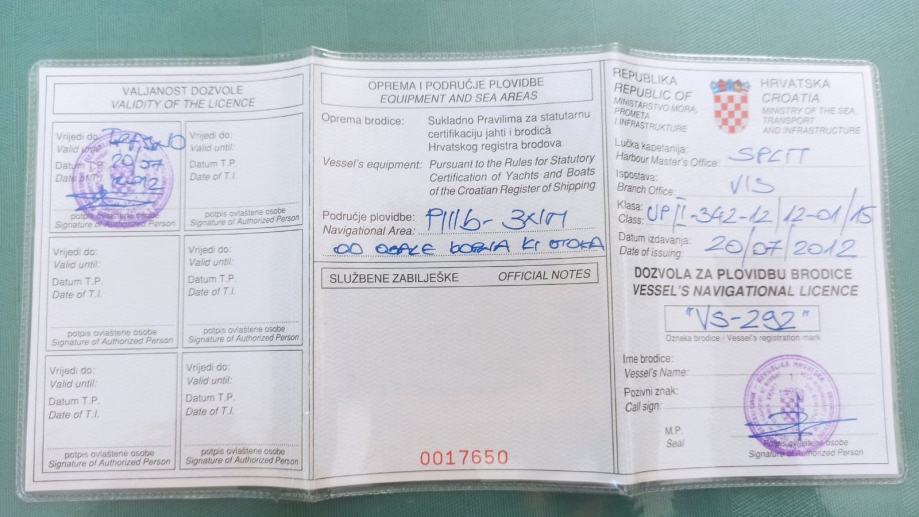 VALJANOST DOZVOLE
VALIDITY OF THE LICENCE
Vrijedi do: TRAJNO
Valid until:
Datum T.P. 20/07
Date of T.I. 2012
potpis ovlaštene osobe
Signature of Authorized Person
Vrijedi do:
Valid until:
Datum T.P.
Date of T.I.
potpis ovlaštene osobe
Signature of Authorized Person
Vrijedi do:
Valid until:
Datum T.P.
Date of T.I.
potpis ovlaštene osobe
Signature of Authorized Person
Vrijedi do:
Valid until:
Datum T.P.
Date of T.I.
potpis ovlaštene osobe
Signature of Authorized Person
Vrijedi do:
Valid until:
Datum T.P.
Date of T.I.
potpis ovlaštene osobe
Signature of Authorized Person
Vrijedi do:
Valid until:
Datum T.P.
Date of T.I.
potpis ovlaštene osobe
Signature of Authorized Person
OPREMA I PODRUČJE PLOVIDBE
EQUIPMENT AND SEA AREAS
Oprema brodice: Sukladno Pravilima za statutarnu
certifikaciju jahti i brodica
Hrvatskog registra brodova
Vessel's equipment: Pursuant to the Rules for Statutory
Certification of Yachts and Boats
of the Croatian Register of Shipping
Područje plovidbe:
Navigational Area: PIIIb-3XIM
OD OBALE KOPNA I OTOKA
SLUŽBENE ZABILJEŠKE OFFICIAL NOTES
0017650
REPUBLIKA HRVATSKA
REPUBLIC OF CROATIA
MINISTARSTVO MORA, MINISTRY OF THE SEA,
PROMETA TRANSPORT
I INFRASTRUKTURE AND INFRASTRUCTURE
Lučka kapetanija:
Harbour Master's Office: SPLIT
Ispostava:
Branch Office: VIS
Klasa:
Class: UP/II-342-12/12-01/15
Datum izdavanja:
Date of issuing: 20/07/2012
DOZVOLA ZA PLOVIDBU BRODICE
VESSEL'S NAVIGATIONAL LICENCE
"VS-292"
Oznaka brodice / Vessel's registration mark
Ime brodice:
Vessel's Name:
Pozivni znak:
Call sign:
M.P.
Seal
potpis ovlaštene osobe
Signature of Authorized Person